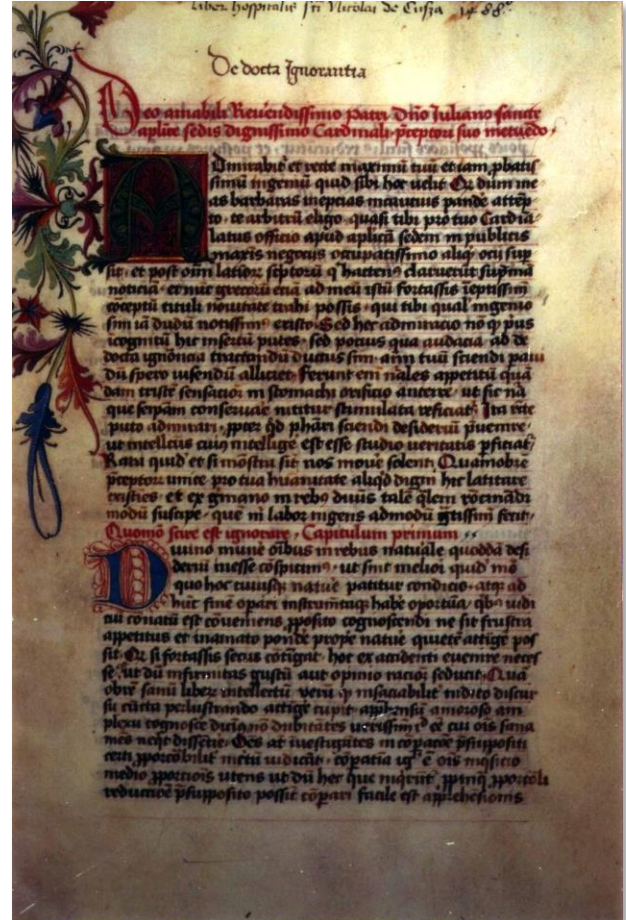 liber hospitalis sti Nicolai de Cusza 1488
De docta Ignorantia
Deo amabili Reverendissimo patri dño Iuliano sancte
aplice sedis dignissimo Cardinali p̄ceptori suo metuēdo
Admirabit et recte maximū tuū et iam pbatis
simū ingeniū quid sibi hoc velit Qᵈ dum me
as barbaras ineptias incautius pandē attēp
to te arbitrū eligo quasi tibi pro tuo Cardīa
latus officio apud aplicā sedem in publicis
maxīs negociis occupatissimo aliqͥ ocii sup
sit et post oīm latiorū sc̄ptorū qͥ hactenꝰ claruerūt sup̄mā
noticiā et nūc grecorū etiā ad meū istū fortassis ieptissim
cōceptū tituli novitate trahi possis qui tibi qualͥ ingenio
sim iā dudū notissimꝰ existo Sed hec admiracio nō qͥ pͥus
icognitū hic insertū putes sed pocius qua audacia ad de
docta ignorācia tractandū ductus sim aīm tuū sciendi pavi
dū spero visendū alliciet Ferunt em̄ nāles appetitū quā
dam tristē sensacioē in stomachi orificio anteire ut sic nā
que seipam conservare nititur stimulata reficiatͬ Ita recte
puto admirari ꝓpter qd phāri sciendi desideriū p̄venire
ut intellectus cuiꝰ intelligē est esse studio veritatis ꝑficiatͬ
Rara quid et si mōstra sīt nos movē solent Quamobrē
p̄ceptorū unice pro tua hūanitate aliqd digni hic latitare
existīes et ex gͥmano in rebꝰ divīs talē qlem rōcinādi
modū suscipe quē m labor ingens admodū gͬtissim fecit
Quomō scire est ignorare Capitulum primum
Divino munē oībus in rebus natūale quoddā desi
deriū inesse cōspicimꝰ ut sint meliori quid mō
quo hoc cuiusqͬ natūe patitur condicio atqͬ ad
hūc finē opari instrumētaqͬ habē oportūa qbꝰ iudi
ciū cōnatū est cōveniens ꝓposito cognoscendi ne sit frustra
appetitus et in amato pondē prop̄e natūe quietē attigē pos
sit Qᵈ si fortassis secus cōtīgat hoc ex accidenti evenire neces
se ut dū infirmitas gustū aut opinio racioꝫ seducit Qua
obrē sanū liberū intellectū verū qͬ insaciabilitͬ indito discur
su cūcta perlustrando attigē cupit apphensū amoroso am
plexu cognoscē dicimꝰ nō dubitātes verissimū id eē cui oīs sana
mēs neqͭ dissētire Oēs at ivestigātes in cōpacōe p̄supposīti
certi ꝓporcōabilitͬ incertū iudicāt cōpativa igͬ ē oīs inqsicio
medio ꝓporcioīs utens ut dū hec que inqrūtͬ ꝓpinqͣ ꝓporcōli
reductiōe p̄supposito possīt cōpari facile est apprehensionis